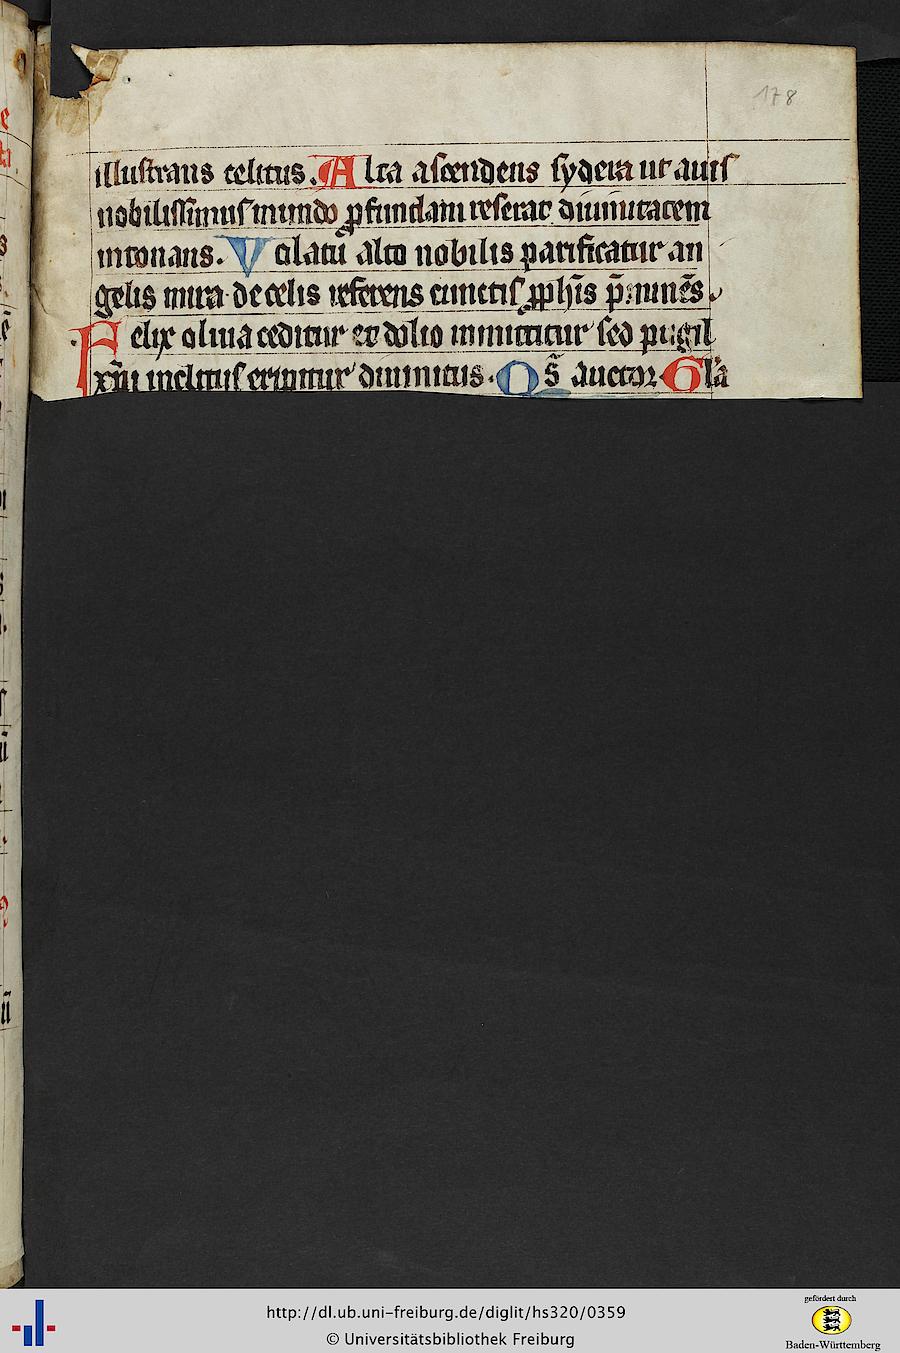 178
illustrans celitus. Alta ascendens sydera ut auis
nobilissimus mundo ꝓfundam reserat diuinitatem
intonans. Volatū alto nobilis parificatur an
gelis mira de celis referens cunctis ꝓph̄is
Felix oliua ceditur et dolio inmittitur sed pugil
xp̄i inclitus eripitur diuinitus. Qs̄ auctor. Gl̄a
http://dl.ub.uni-freiburg.de/diglit/hs320/0359
© Universitätsbibliothek Freiburg
gefördert durch
Baden-Württemberg